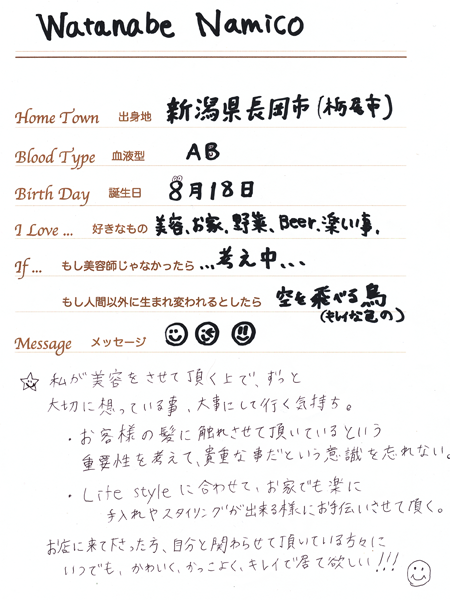 Watanabe Namico
Home Town 出身地 新潟県長岡市(栃尾市)
Blood Type 血液型 AB
Birth Day 誕生日 8月18日
I Love ... 好きなもの 美容、お家、野菜、Beer、楽しい事、
If ... もし美容師じゃなかったら ...考え中...
もし人間以外に生まれ変われるとしたら 空を飛べる鳥
(キレイな色の)
Message メッセージ
私が美容をさせて頂く上で、ずっと
大切に想っている事、大事にして行く気持ち。
・お客様の髪に触れさせて頂いているという
重要性を考えて、貴重な事だという意識を忘れない。
・Life styleに合わせて、お家でも楽に
手入れやスタイリングが出来る様にお手伝いさせて頂く。
お店に来て下さった方、自分と関わらせて頂いている方々に
いつでも、かわいく、かっこよく、キレイで居て欲しい!!!